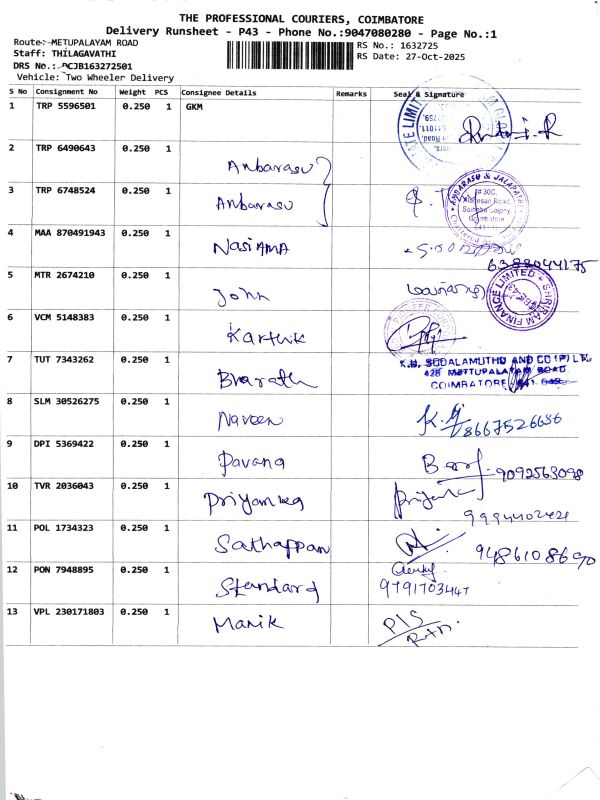 THE PROFESSIONAL COURIERS, COIMBATORE
Delivery Runsheet - P43 - Phone No.:9047080280 - Page No.:1
Route:-METUPALAYAM ROAD
RS No.: 1632725
Staff: THILAGAVATHI
RS Date: 27-Oct-2025
DRS No.:-PCJB163272501
Vehicle: Two Wheeler Delivery
S No Consignment No Weight PCS Consignee Details Remarks Seal & Signature
1 TRP 5596501 0.250 1 GKM
2 TRP 6490643 0.250 1 Anbarasu
3 TRP 6748524 0.250 1 Anbarasu
ANBARASU & JALAPATHI
# 30C,
Coimbatore
4 MAA 870491943 0.250 1 NASIAMA
6382044175
5 MTR 2674210 0.250 1 John
SHRIRAM FINANCE LIMITED
6 VCM 5148383 0.250 1 Karthik
7 TUT 7343262 0.250 1 Bharath
K.B. SODALAMUTHU AND CO (P) LTD
428 METTUPALAYAM ROAD
COIMBATORE 641 043
8 SLM 30526275 0.250 1 Naveen
8667526686
9 DPI 5369422 0.250 1 Pavana
9092563098
10 TVR 2036043 0.250 1 Priyanka
Priyanka
9994402421
11 POL 1734323 0.250 1 Sathappan
9486108690
12 PON 7948895 0.250 1 Standard
9791703447
13 VPL 230171803 0.250 1 Manik
P/S